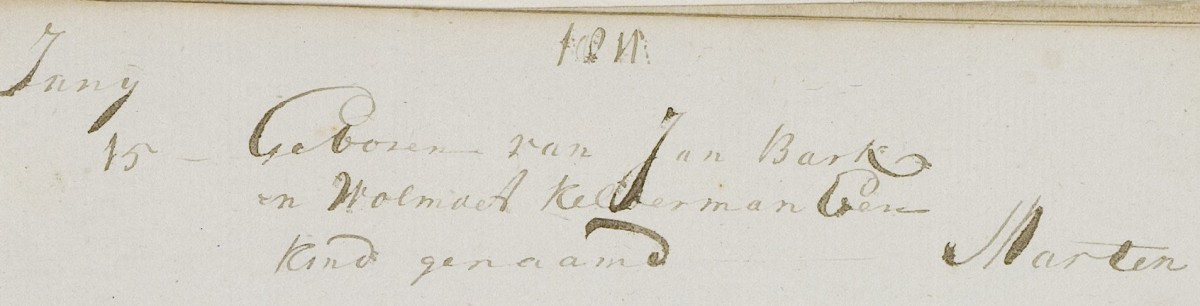 1811
Juny
15 - Geboren van Jan Bark
en Wolmoet Kelderman Een
Kind genaamd Marten